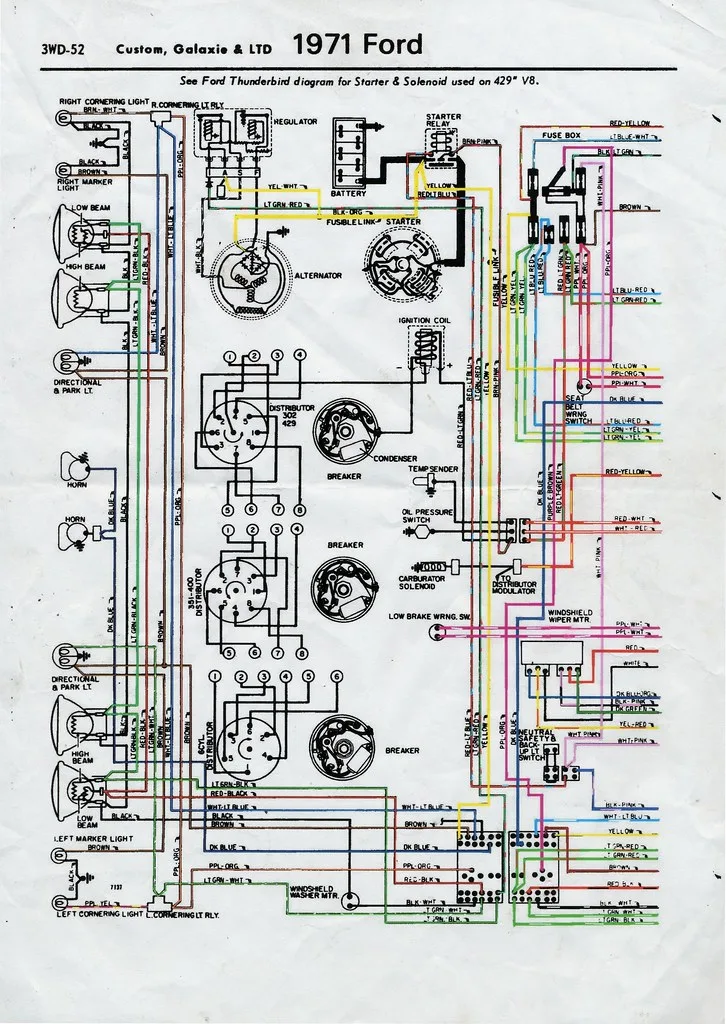 3WD-52 Custom, Galaxie & LTD 1971 Ford
See Ford Thunderbird diagram for Starter & Solenoid used on 429" V8.
RIGHT CORNERING LIGHT
R.CORNERING LT RLY.
BRN-WHT
BLACK
BLACK
PPL-ORG
REGULATOR
A S F
BATTERY
STARTER
RELAY
BRN-PINK
RED-YELLOW
FUSE BOX
LT BLUE-WHT
BLK-LT GRN
BLACK
BROWN
RIGHT MARKER
LIGHT
YEL-WHT
YELLOW
RED-LT BLU
LT GRN-RED
BLK-ORG
FUSIBLE LINK
STARTER
WHT-PINK
BROWN
LOW BEAM
HIGH BEAM
BLACK
LT GRN-BLK
RED-BLK
WHT-LT BLUE
WHT-BLK
ALTERNATOR
FUSIBLE LINK
YELLOW
LT GRN-YEL
LT GRN-YEL
LT BLU-RED
LT BLU-RED
RED-LT GRN
LT GRN-RED
PPL-WHT
PPL-ORG
PPL-ORG
LT BLU-RED
LT GRN-RED
BLK
LT GRN-BLK
RED-BLK
WHT-LT BLUE
BROWN
IGNITION COIL
- +
DIRECTIONAL
& PARK LT.
1 2 3 4
DISTRIBUTOR
302
429
5 6 7 8
CONDENSER
BREAKER
RED-LT GRN
RED-LT BLU
LT GRN-RED
YELLOW
BRN-PINK
YELLOW
PPL-ORG
PPL-WHT
DK BLUE
SEAT
BELT
WRNG
SWITCH
LT BLU-RED
LT GRN-YEL
LT GRN-YEL
HORN
DK BLUE
BLACK
PPL-ORG
TEMP SENDER
DK BLUE
PURPLE-BROWN
RED-LT GREEN
RED-YELLOW
HORN
OIL PRESSURE
SWITCH
RED-WHT
WHT-RED
1 2 3 4
351-400
DISTRIBUTOR
5 6 7 8
BREAKER
CARBURATOR
SOLENOID
TO
DISTRIBUTOR
MODULATOR
WHT PINK
DK BLUE
LT GRN-BLACK
BROWN
LOW BRAKE WRNG. SW.
WINDSHIELD
WIPER MTR.
PPL-WHT
PPL-WHT
RED
WHITE
DIRECTIONAL
& PARK LT.
1 2 3 4 5 6
6CYL.
DISTRIBUTOR
BREAKER
DK BLU-ORG
BLK-PINK
DK GREEN
YEL-RED
HIGH
BEAM
BLACK
LT GRN-BLK
RED-BLK
LT GRN-WHT
BROWN
WHT-LT BLUE
BROWN
RED-LT BLUE
LT GRN-RED
YELLOW
PPL-ORG
DK BLUE
NEUTRAL
SAFETY &
BACK-
UP LT
SWITCH
WHT PINK
WHT-PINK
LOW
BEAM
LT GRN-BLK
RED-BLACK
WHT-LT BLUE
BLACK
BLACK
BROWN
WHT-LT BLUE
BROWN
BLK-PINK
WHT-LT BLU
YELLOW
LEFT MARKER LIGHT
BROWN
DK BLUE
DK BLUE
LT GRN-RED
LT GRN-RED
BLACK
PPL-ORG
PPL-ORG
PPL-ORG
BROWN
1137
LT GRN-WHT
RED-BLK
RED BLK
WINDSHIELD
WASHER MTR.
PPL YEL
BLK-WHT
LT GRN-WHT
LT GRN-BLK
BLK-WHT
LT GRN WHT
LT GRN-BLK
LEFT CORNERING LIGHT
L.CORNERING LT RLY.